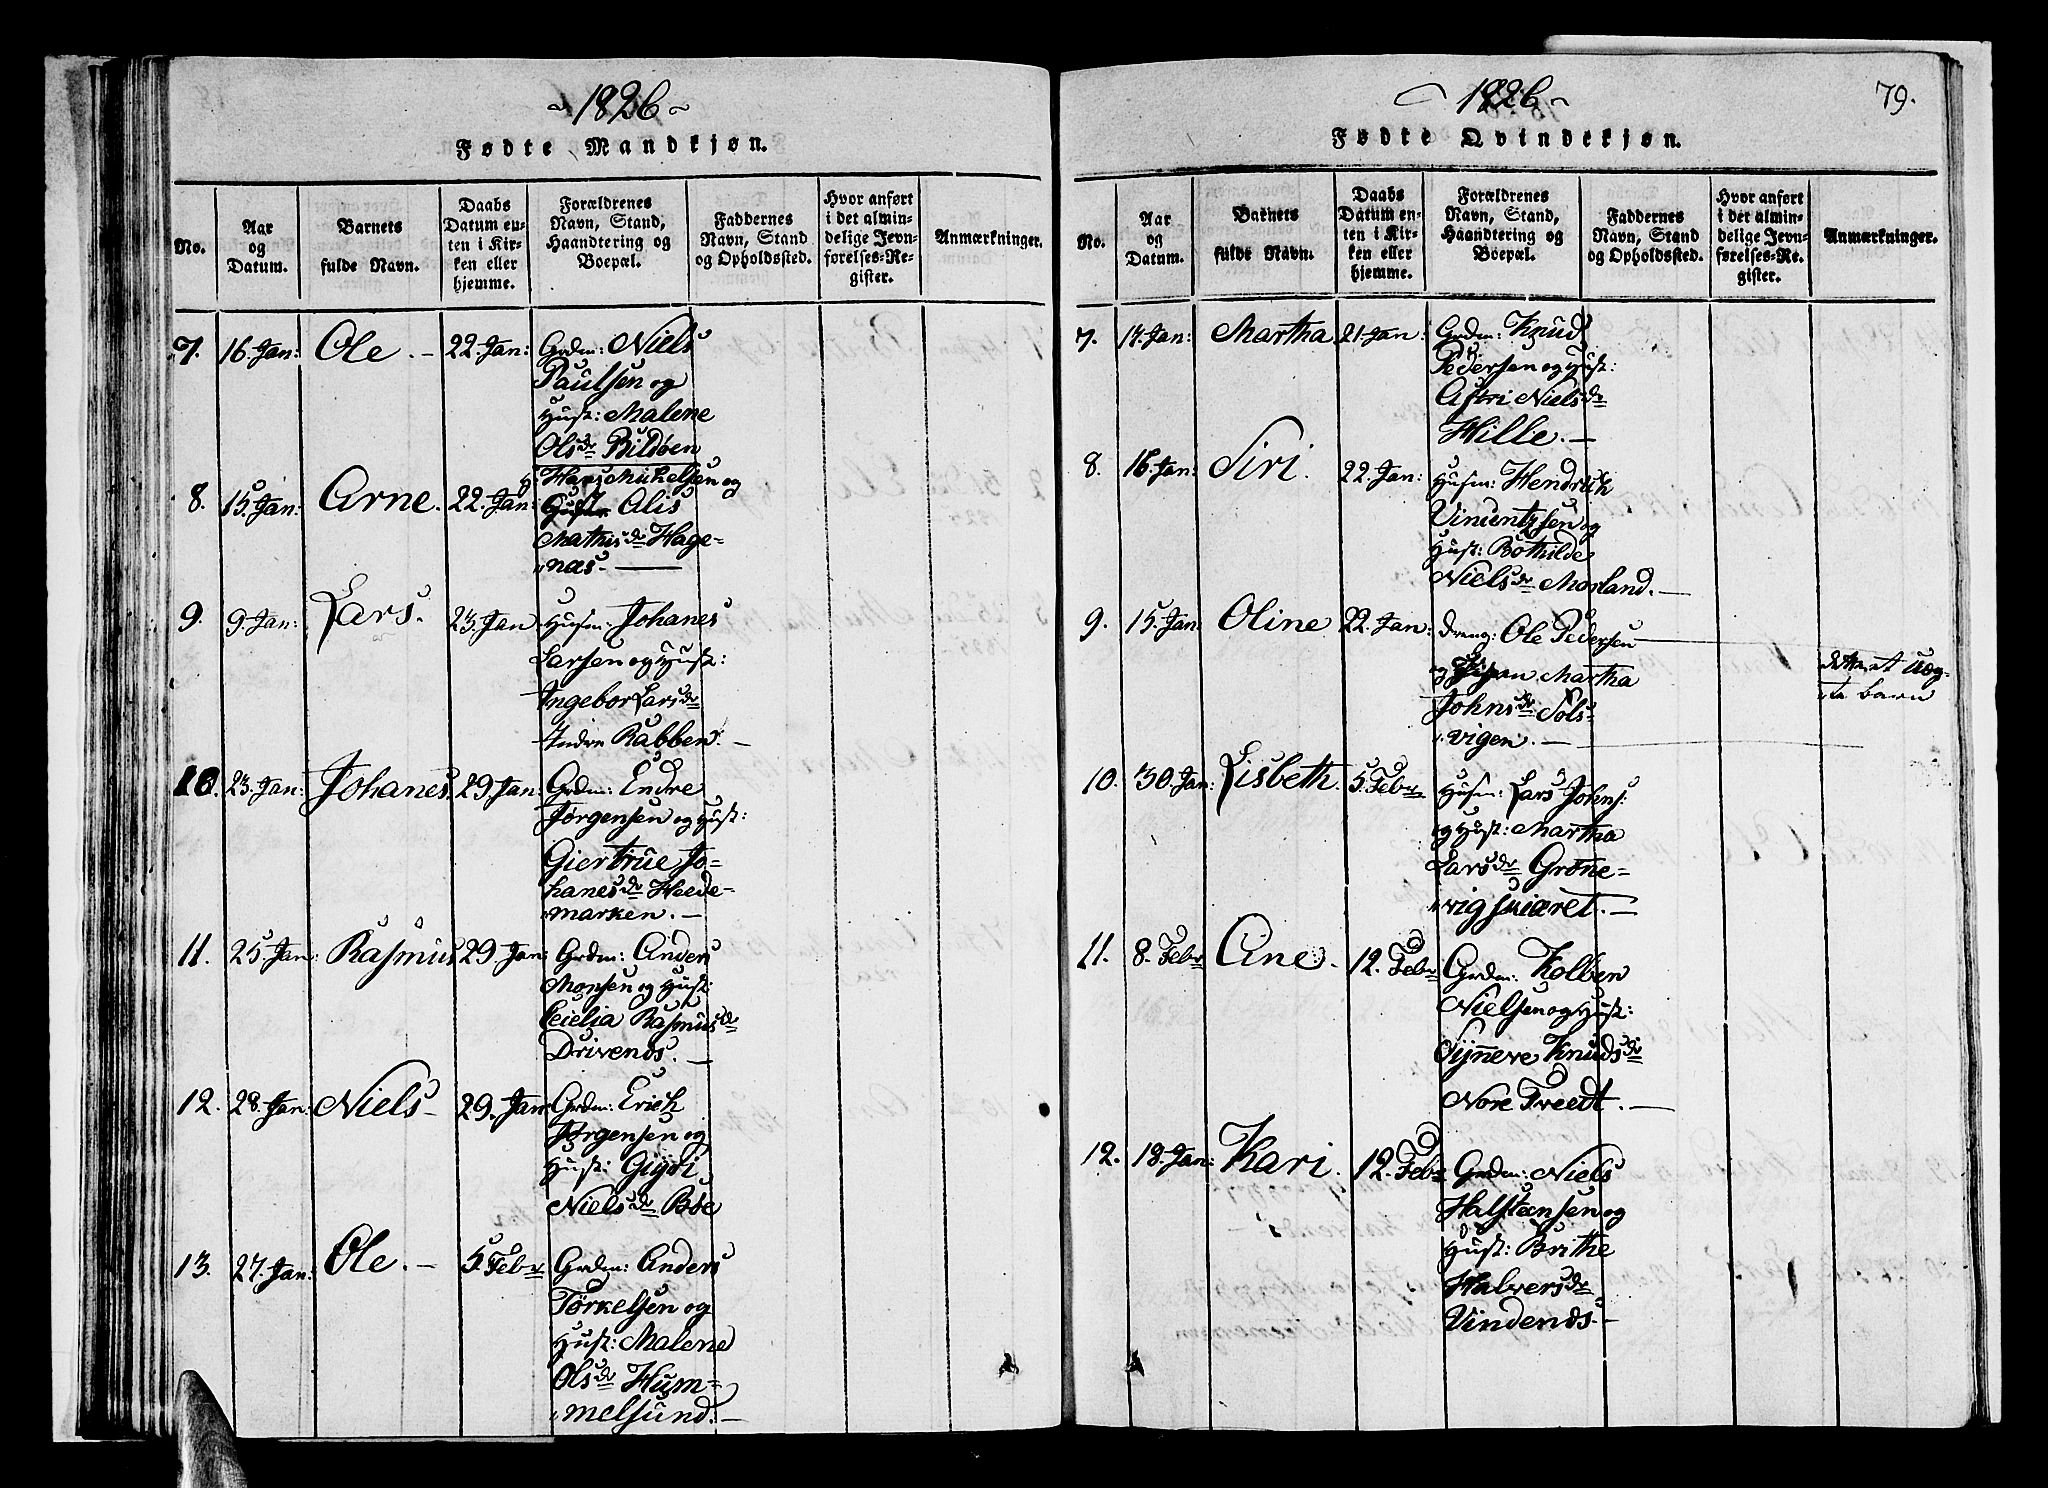 ~ 1826 ~
Fødte Mandkjøn.
No.
Aar
og
Datum.
Barnets
fulde Navn.
Daabs
Datum en-
ten i Kir-
ken eller
hjemme.
Forældrenes
Navn, Stand,
Haandtering og
Boepæl.
Faddernes
Navn, Stand
og Opholdssted.
Hvor anført
i det almin-
delige Jevn-
førelses-Re-
gister.
Anmærkninger.
7. 16. Jan: Ole. — 22. Jan: Grdm: Niels
Paulsen og
Hust: Malene
Olsdr Bildøen
8. 15. Jan: Arne. 22. Jan: Hans Mikelsen og
Hust Alis
Mathisdr Hage-
næs. —
9. 9. Jan: Lars. 23. Jan Husm: Johanes
Larsen og Hust:
Ingebor Larsdr
Indre Rabben. —
10. 23. Jan: Johanes. 29. Jan: Grdm: Endre
Jørgensen og Hust:
Giertrue Jo-
hanesdr Heede-
marken. —
11. 25. Jan: Rasmus 29. Jan: Grdm: Anders
Monsen og Hust:
Ceielia Rasmusdr
Drivenes. —
12. 28. Jan: Niels — 29. Jan Grdm: Erich
Jørgensen og
Hust: Gyri
Nielsdr Böe
13. 27. Jan: Ole. — 5. Febr Grdm: Anders
Törkelsen og
Hust: Malene
Olsdr Hum-
melsund. —
~ 1826 ~
79.
Fødte Qvindekjøn.
No.
Aar
og
Datum.
Barnets
fulde Navn.
Daabs
Datum en-
ten i Kir-
ken eller
hjemme.
Forældrenes
Navn, Stand,
Haandtering og
Boepæl.
Faddernes
Navn, Stand
og Opholdssted.
Hvor anført
i det almin-
delige Jevn-
førelses-Re-
gister.
Anmærkninger.
7. 17. Jan: Martha 21. Jan: Grdm: Knud
Pedersen og Hust:
Astri Nielsdr
Hille. —
8. 16. Jan: Siri 22. Jan: Husm: Hendrich
Vincentzsen og
Hust: Bothilde
Nielsdr Morland. —
9. 15. Jan: Oline 22. Jan: Dreng: Ole Pedersen
og Pigen Martha
Johnsdr Sols-
vigen. —
dette et Uæg-
te barn
10. 30. Jan: Lisbeth. 5. Febr Husm: Lars Johns:
og Hust: Martha
Larsdr Gröne-
vigskiæret. —
11. 8. Febr Ane. 12. Febr Grdm: Kolben
Nielsen og Hust:
Synneve Knudsdr
Nore Tveedt. —
12. 18. Jan: Kari. 12. Febr Grdm: Niels
Halsteensen og
Hust: Brithe
Halversdr
Vindenes. —